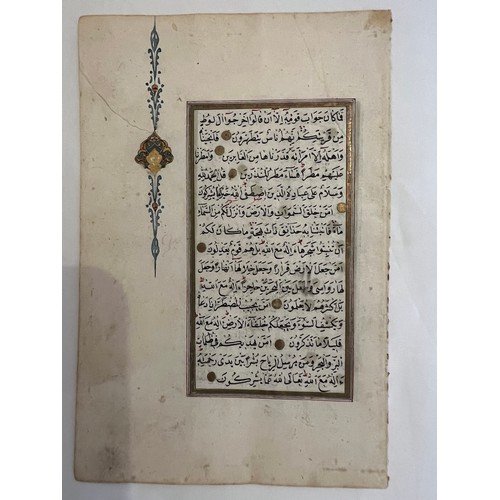 فما كان جواب قومه الا ان قالوا اخرجوا ال لوط
من قريتكم انهم اناس يتطهرون فانجيناه
واهله الا امراته قدرناها من الغابرين وامطرنا
عليهم مطرا فساء مطر المنذرين قل الحمد لله
وسلام على عباده الذين اصطفى الله خير اما يشركون
امن خلق السموات والارض وانزل لكم من السماء
ماء فانبتنا به حدائق ذات بهجة ما كان لكم
ان تنبتوا شجرها ءاله مع الله بل هم قوم يعدلون
امن جعل الارض قرارا وجعل خلالها انهارا وجعل
لها رواسي وجعل بين البحرين حاجزا ءاله مع الله
بل اكثرهم لا يعلمون امن يجيب المضطر اذا دعاه
ويكشف السوء ويجعلكم خلفاء الارض ءاله مع الله
قليلا ما تذكرون امن يهديكم في ظلمات
البر والبحر ومن يرسل الرياح بشرا بين يدي رحمته
ءاله مع الله تعالى الله عما يشركون